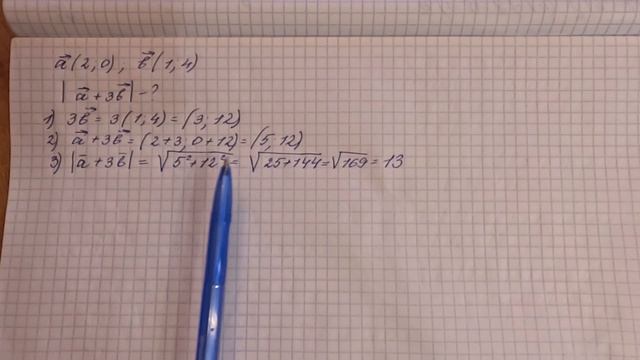 a⃗ (2,0), b⃗ (1,4)
| a⃗ + 3b⃗ | - ?
1) 3b⃗ = 3(1,4) = (3, 12)
2) a⃗ + 3b⃗ = (2+3, 0+12) = (5, 12)
3) |a⃗ + 3b⃗| = √(5²+12²) = √(25+144) = √169 = 13